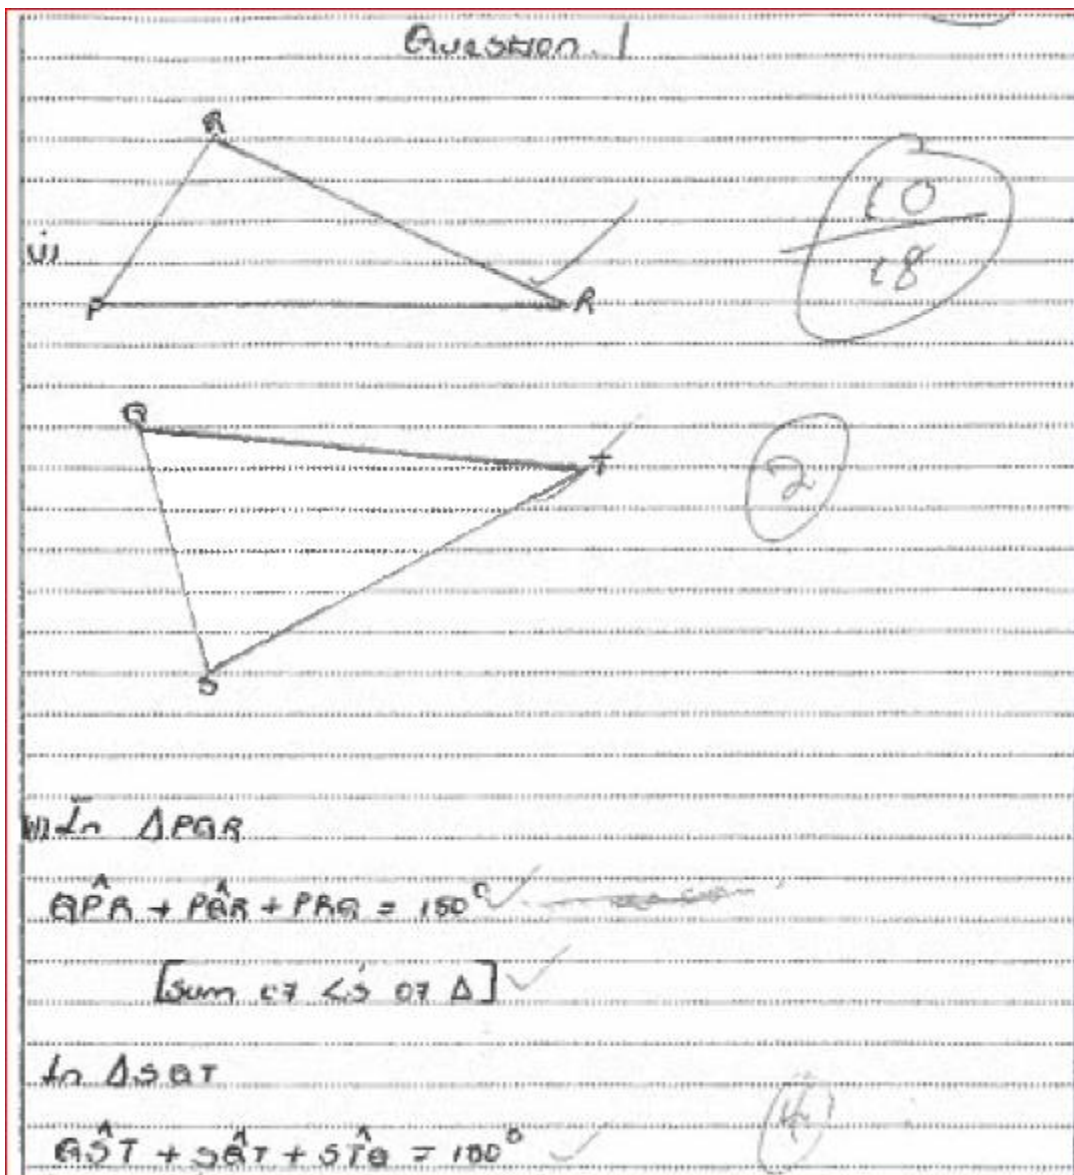 Question 1
10
18
Q
i)
P R
Q
T
2
S
ii) In ΔPQR
QP̂R + PQ̂R + PRQ = 180°
[sum of <'s of Δ]
In ΔSQT
QŜT + SQ̂T + ST̂Q = 180°
4